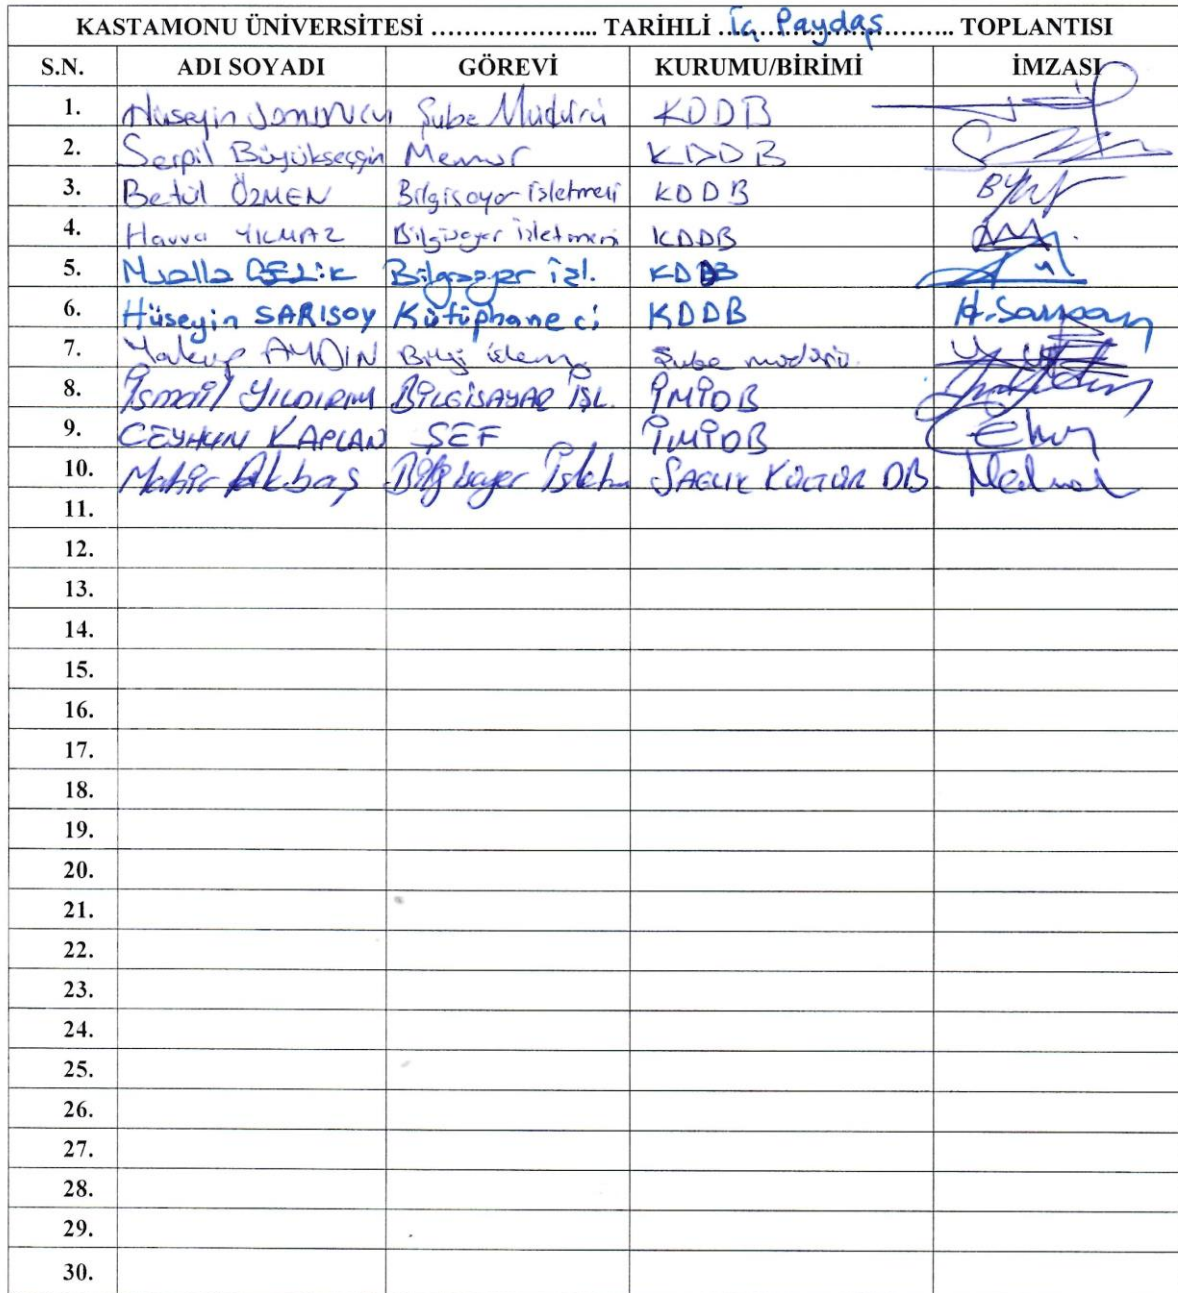 KASTAMONU ÜNİVERSİTESİ ………………... TARİHLİ İç Paydaş TOPLANTISI
S.N. ADI SOYADI GÖREVİ KURUMU/BİRİMİ İMZASI
1. Hüseyin Şube Müdürü KDDB
2. Serpil Büyükseçgin Memur KDDB
3. Betül ÖZMEN Bilgisayar İşletmeni KDDB
4. Havva YILMAZ Bilgisayar işletmeni KDDB
5. Mualla ÇELİK Bilgisayar İşl. KDDB
6. Hüseyin SARISOY Kütüphaneci KDDB H.Sarısoy
7. Yakup AYDIN Bilgi işlem Şube müdürü
8. İsmail YILDIRIM BİLGİSAYAR İŞL. İMİDB
9. CEYHUN KAPLAN ŞEF İMİDB
10. Mahir Akbaş Bilgisayar İşletm SAĞLIK KÜLTÜR DB
11.
12.
13.
14.
15.
16.
17.
18.
19.
20.
21.
22.
23.
24.
25.
26.
27.
28.
29.
30.